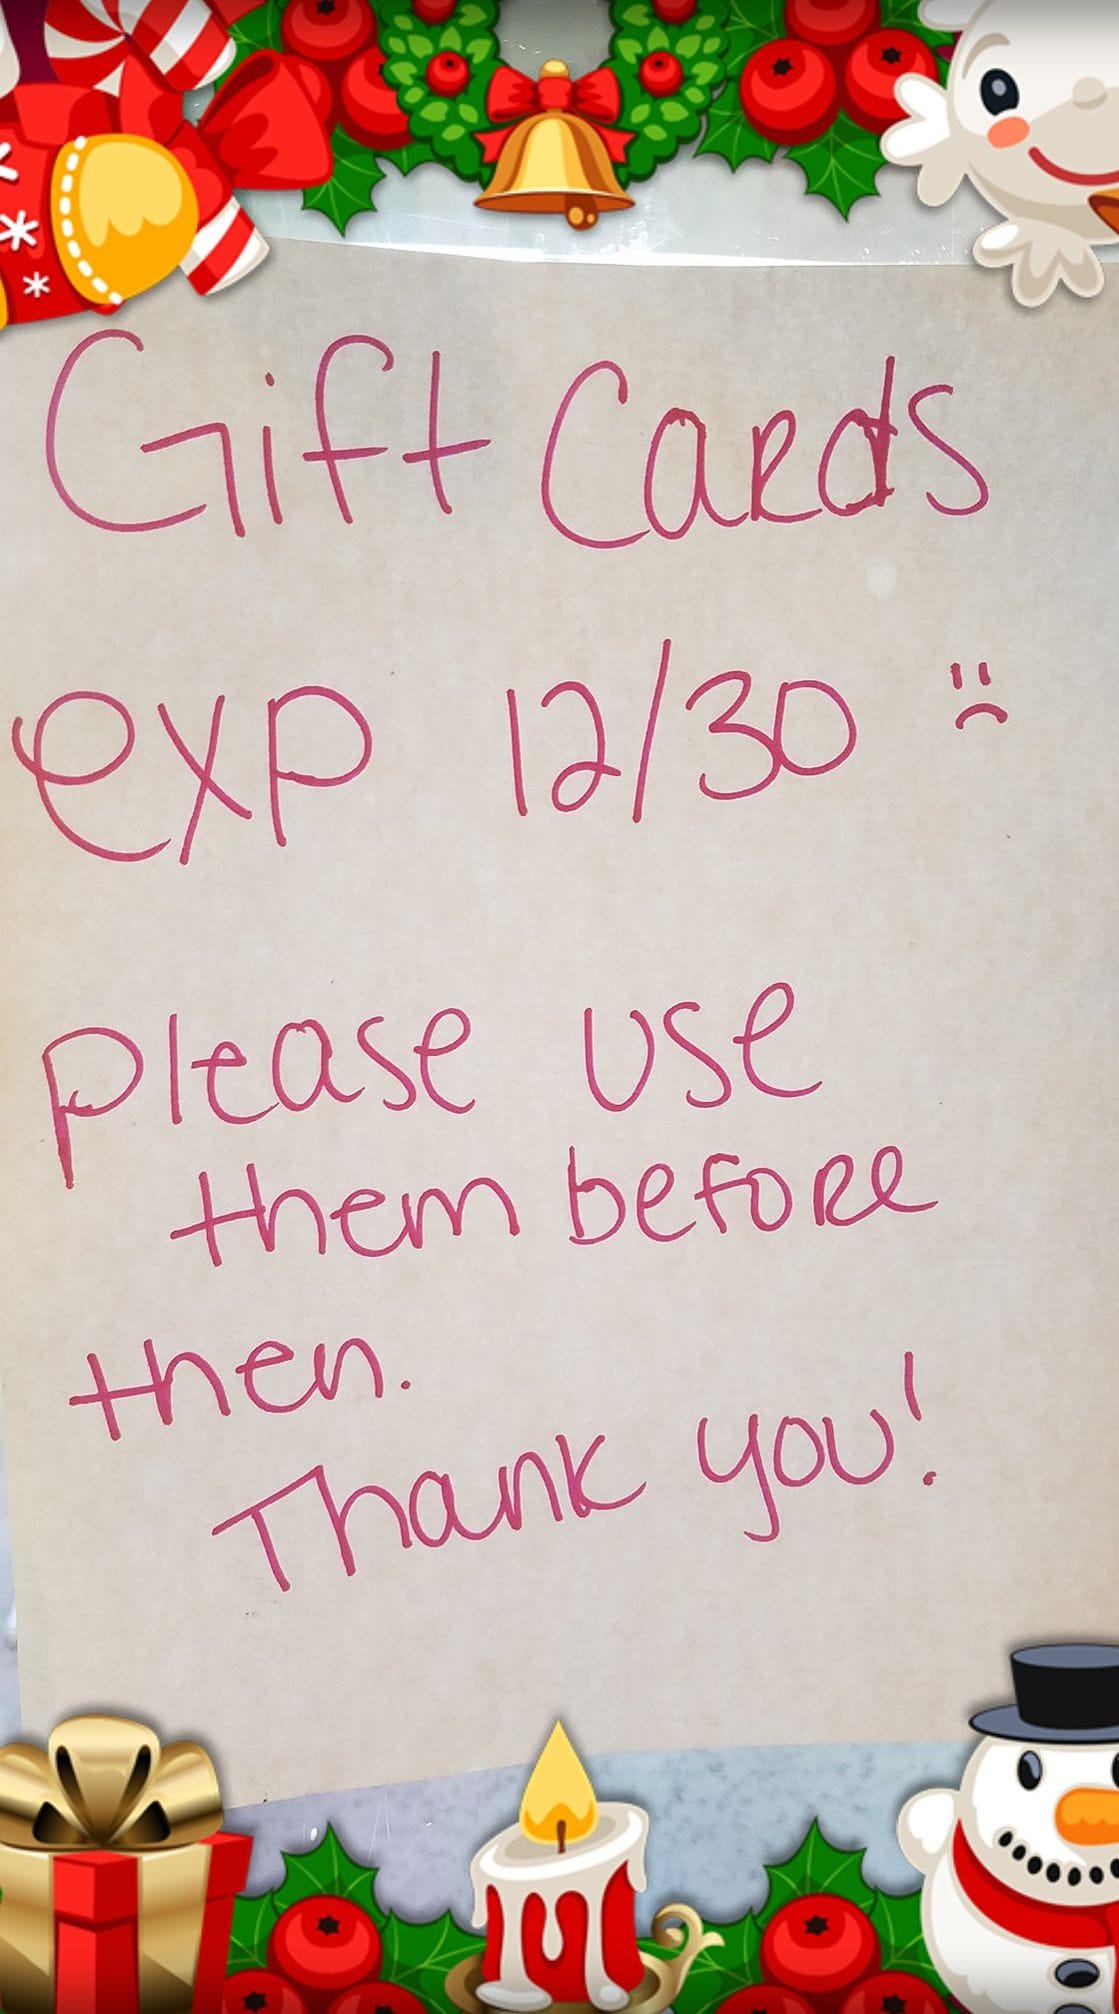 Gift Cards
exp 12/30 :(
Please use
them before
then.
Thank you!